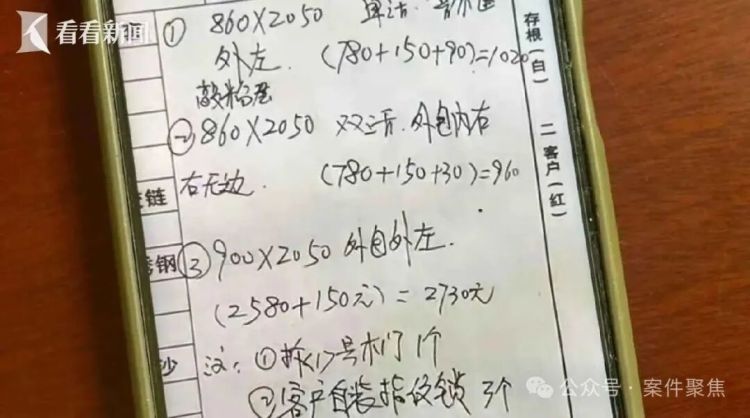 看看新闻
① 860×2050
外左. (780+150+90)=1020
② 860×2050 双后.外包内右
右无边. (780+150+30)=960
③ 900×2050 外包外左.
(2580+150元) = 2730元
注: ①拆17号木门1个
②客户自装指纹锁3个
链
钢
沙
存根(白)
二客户(红)
公众号·案件聚焦